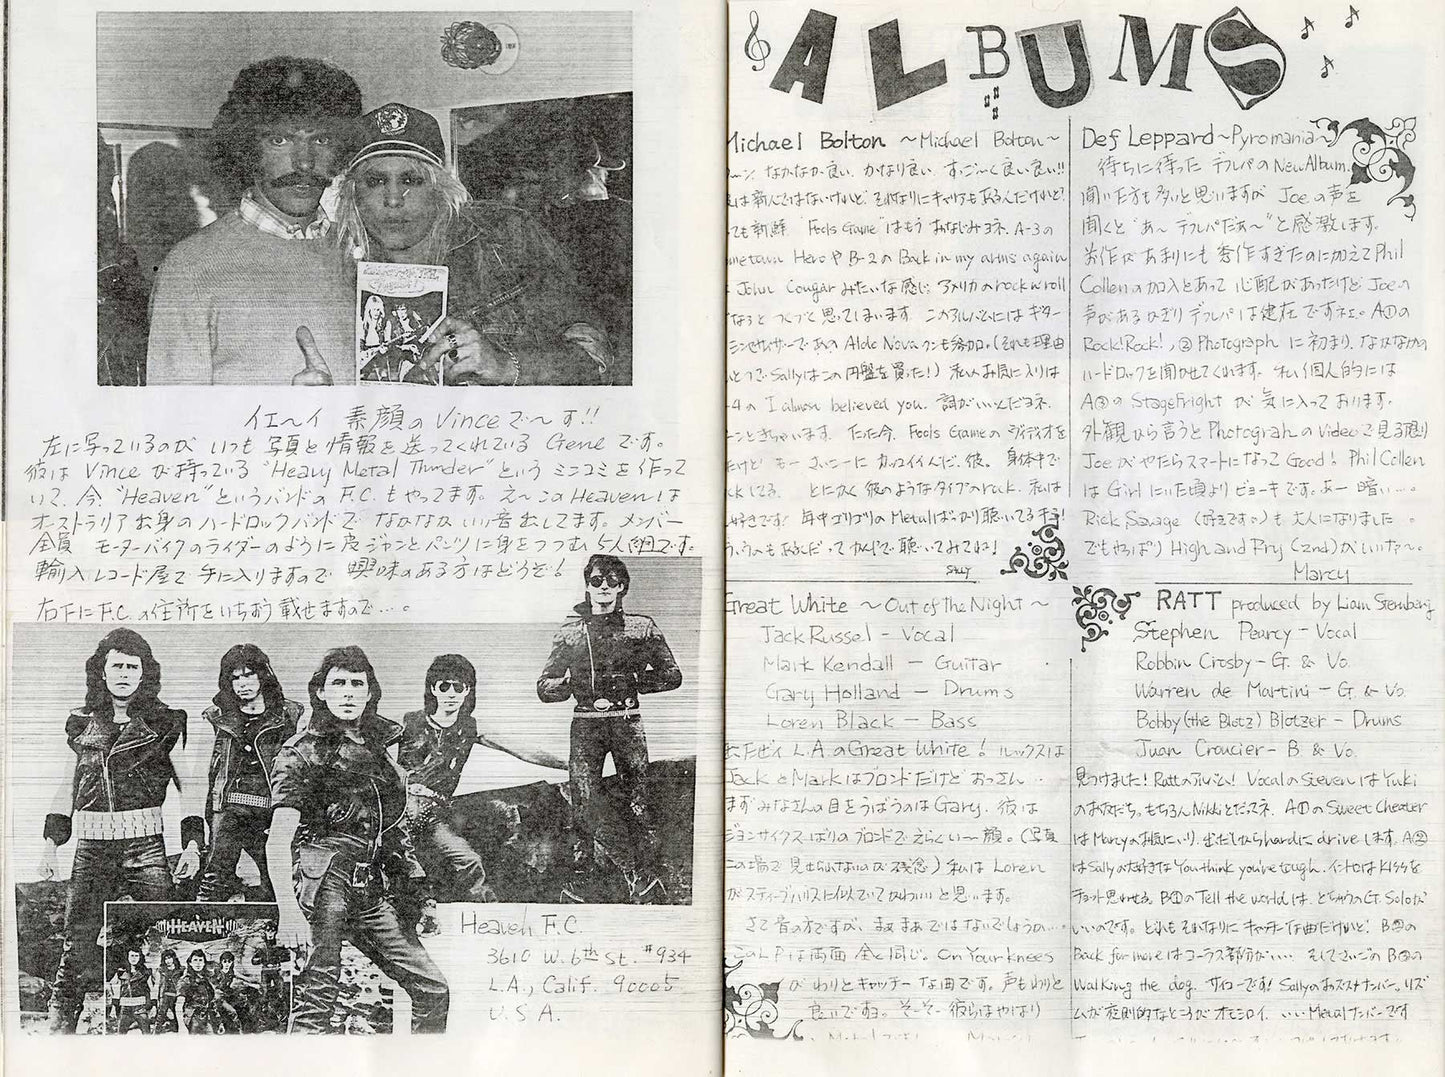 イェ〜イ 素顔の Vinceで〜す!!
左に写っているのが いつも 写真と情報を送ってくれている Gene です。
彼は Vince が持っている "Heavy Metal Thunder" という ミニコミを作って
いて、今 "Heaven" というバンドの F.C. もやってます。え〜このHeavenは
オーストラリア出身のハードロックバンドで なかなかいい音出してます。メンバー
全員 モーターバイクのライダーのように皮ジャンとパンツに身をつつむ 5人組です。
輸入レコード屋で手に入りますので 興味のある方はどうぞ!
右下にF.C.の住所をいちおう載せますので…。
HEAVEN
Heaven F.C.
3610 W. 6th St. #934
L.A., Calif. 90005
U.S.A.
ALBUMS
Michael Bolton 〜Michael Bolton〜
なかなか良い、かなり良い、すご〜く良い良い!!
は新人ではないけれど それなりにキャリアもあるんだけれど
ても新鮮 "Fools Game" はもうおなじみヨネ、A-3の
Hero や B-2の Back in my arms again
John Cougar みたいな感じ アメリカの rock'n roll
なぁとつくづく思ってしまいます このアルバムにはギター
であの Aldo Nova クンも参加。(それも理由
ひとつで Sallyはこの円盤を買った!) 私のお気に入りは
-4の I almost believed you. 詞がいいんだヨネ、
ときちゃいます。たった今、Fools Gameの ビデオを
たけど も〜さいこーに カッコイイんだ、彼。身体中で
rockしてる。とにかく 彼のようなタイプのrock、私は
好きです! 年中ゴリゴリの Metalばっかり聴いてる子!
SALLY
Def Leppard〜Pyromania〜
待ちに待った デフレパのNew Album.
聞いた方も多いと思いますが Joeの声を
聞くと "あ〜 デフレパだぁ〜" と感激します。
前作があまりにも秀作すぎたのに加えて Phil
Collenの加入とあって 心配があったけど Joeの
声があるかぎり デフレパは健在ですネェ。A①の
Rock! Rock!, ② Photograph に初まり、なかなかの
ハードロックを聞かせてくれます。私、個人的には
A③の Stagefright が 気に入っております。
外観から言うと Photograhの Videoで見る限り
Joeがやたらスマートになって Good! Phil Collen
は Girl にいた頃より ビョーキです。あー 暗い…。
Rick Savage (好きです。) も大人になりました。
でもやっぱり High and Dry (2nd) がいいナァ〜。
Marcy
Great White 〜Out of the Night〜
Jack Russel - Vocal
Mark Kendall - Guitar
Gary Holland - Drums
Loren Black - Bass
L.A.の Great White! ルックスは
Jack と Mark はブロンドだけど おっさん…
まず みなさんの目をうばうのは Gary. 彼は
ジョンサイクスばりのブロンドで えらくいい〜顔。(写真
この場で見せられないのが残念) 私は Loren
がスティーブハリスに似ていて かわいいと思います。
さて音の方ですが、まぁまぁではないでしょうか…
このLPは両面 全く同じ。On Your knees
がわりとキャッチーな曲です。声もわりと
良いですョ。そーそー 彼らはやはり
RATT produced by Liam Sternberg
Stephen Pearcy - Vocal
Robbin Crosby - G. & Vo.
Warren de Martini - G. & Vo.
Bobby (the Blotz) Blotzer - Drums
Juan Croucier - B & Vo.
見つけました! Rattのアルバム! Vocalの Stevenは Yuki
のおともだち。もちろん Nikkiとだってネ。A①の Sweet Cheater
は Marcyのお気にいり、出だしから hardに driveします。A②
は Sallyの大好きな You think you're tough. イントロは KISSを
チョット思わせる。B①の Tell the worldは、どちらのGt. Soloが
いいのです。どれもそれなりに キャッチーな曲だけど、B②の
Back for moreは コーラス部分がいい… そしてさいごの B③の
Walking the dog. サイコーです! Sallyのおススメナンバー。リズ
ムが変則的なところがオモシロイ、いい Metalナンバーです